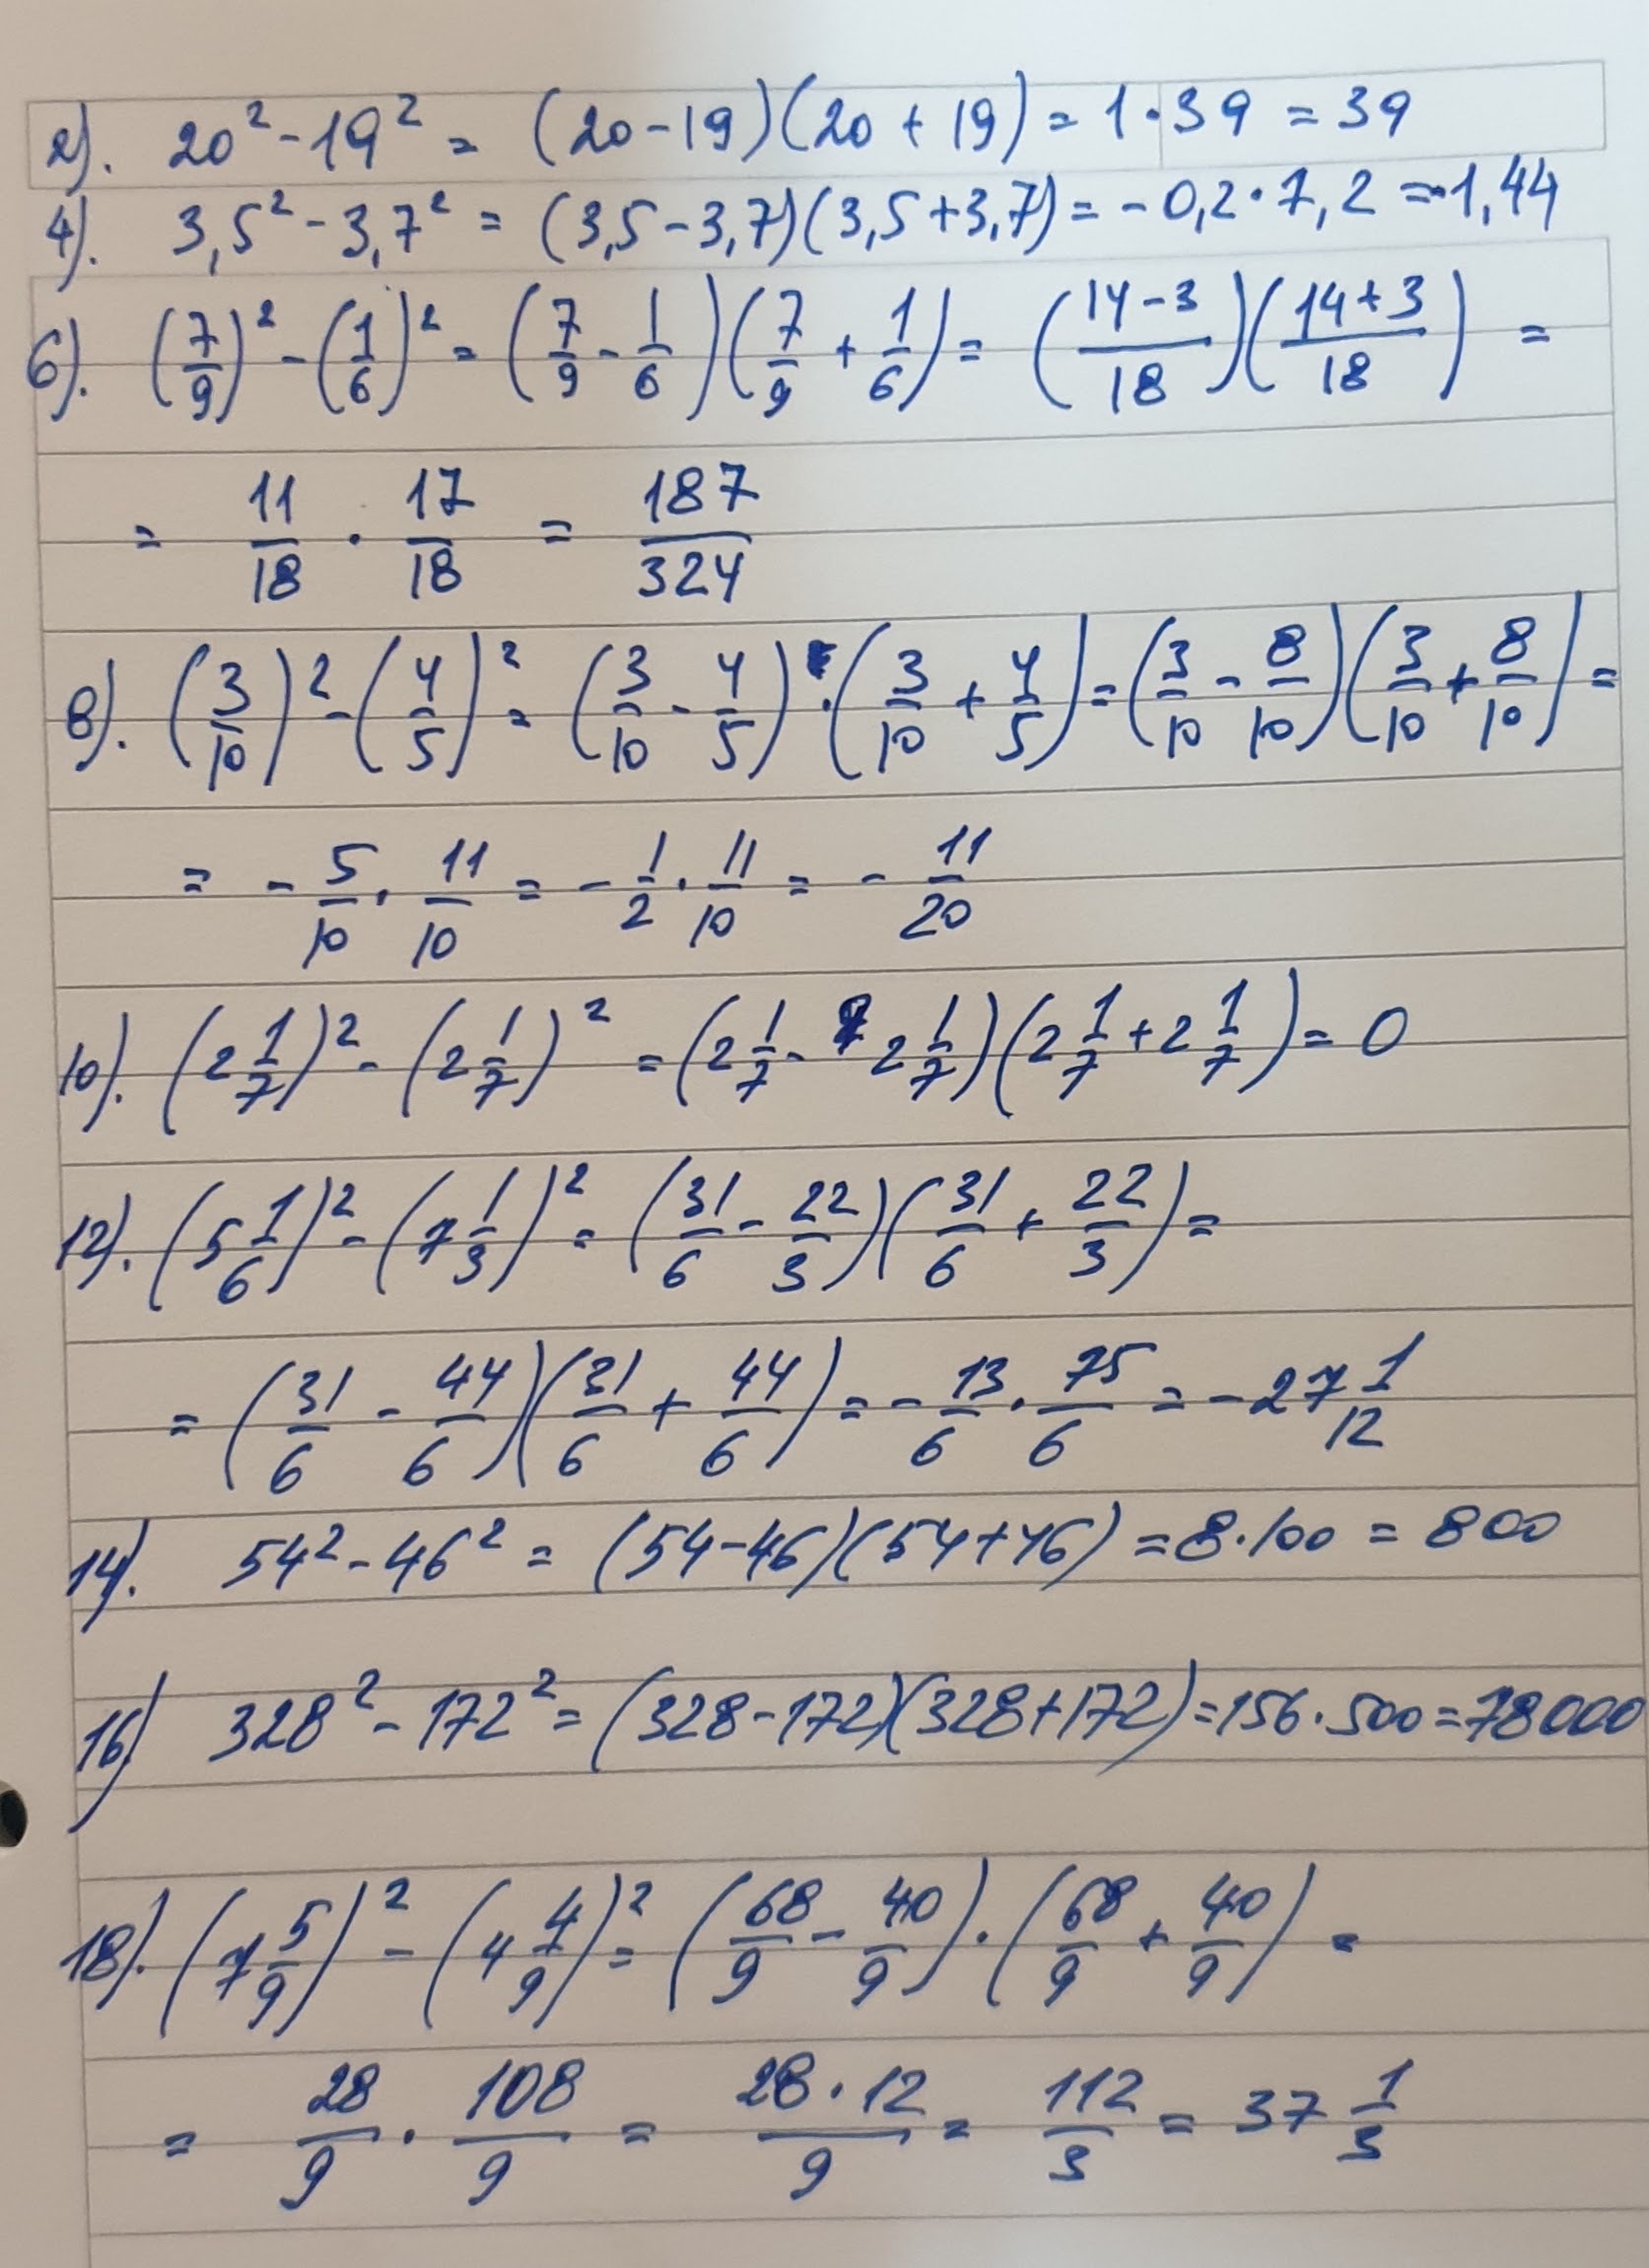 2). 20² - 19² = (20 - 19)(20 + 19) = 1 · 39 = 39
4). 3,5² - 3,7² = (3,5 - 3,7)(3,5 + 3,7) = - 0,2 · 7,2 = -1,44
6). (7/9)² - (1/6)² = (7/9 - 1/6)(7/9 + 1/6) = ((14 - 3)/18)((14 + 3)/18) =
= 11/18 · 17/18 = 187/324
8). (3/10)² - (4/5)² = (3/10 - 4/5) · (3/10 + 4/5) = (3/10 - 8/10)(3/10 + 8/10) =
= - 5/10 · 11/10 = - 1/2 · 11/10 = - 11/20
10). (2 1/7)² - (2 1/7)² = (2 1/7 - 2 1/7)(2 1/7 + 2 1/7) = 0
12). (5 1/6)² - (7 1/3)² = (31/6 - 22/3)(31/6 + 22/3) =
= (31/6 - 44/6)(31/6 + 44/6) = - 13/6 · 75/6 = - 27 1/12
14). 54² - 46² = (54 - 46)(54 + 46) = 8 · 100 = 800
16) 328² - 172² = (328 - 172)(328 + 172) = 156 · 500 = 78000
18). (7 5/9)² - (4 4/9)² = (68/9 - 40/9) · (68/9 + 40/9) =
= 28/9 · 108/9 = (28 · 12)/9 = 112/3 = 37 1/3